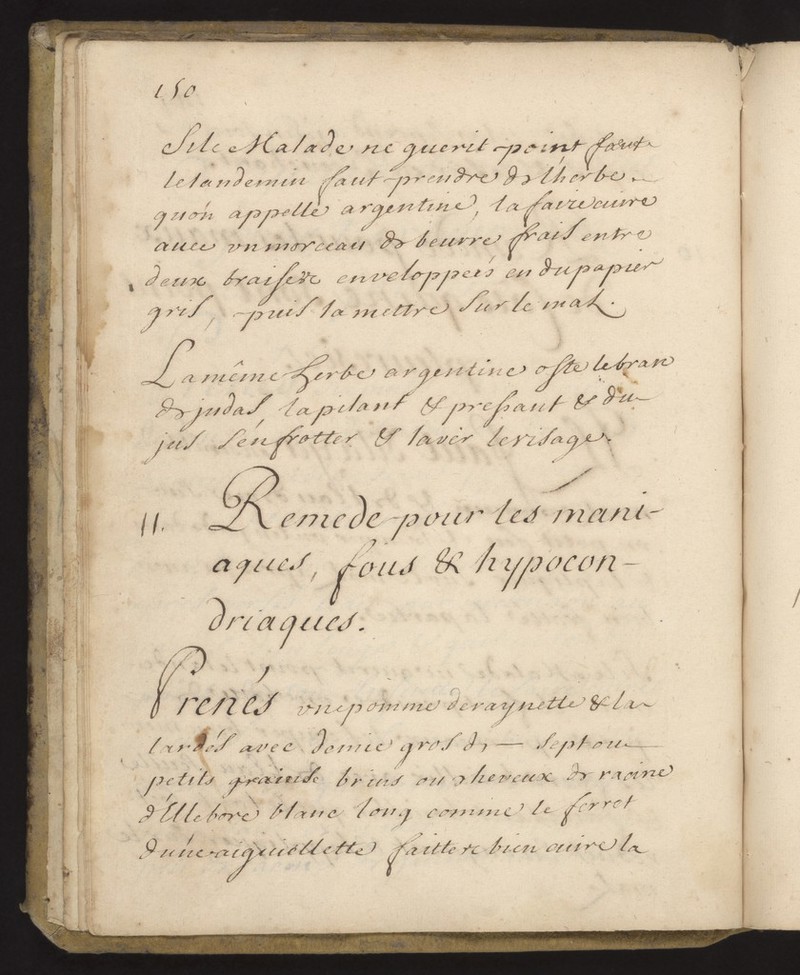 150
Si le Malade ne guerit point faut
le landemin faut prendre de l'herbe
qu'on appelle argentine, la faire cuire
avec vn morceau de beurre frais entre
deux braises enveloppeés en du papier
gris, puis la mettre sur le mal.
La même herbe argentine oste le bran
de judas la pilant & pressant & du
jus s'en frotter & laver le visage.
11. Remede pour les mani-
aques, fous & hypocon-
driaques.
Prenés vne pomme de raynette & la
lardés avec demie gros de — sept ou
petits brins ou cheveux de racine
d'Ellebore blanc long comme le ferret
d'une aiguiellette faitte bien cuire la